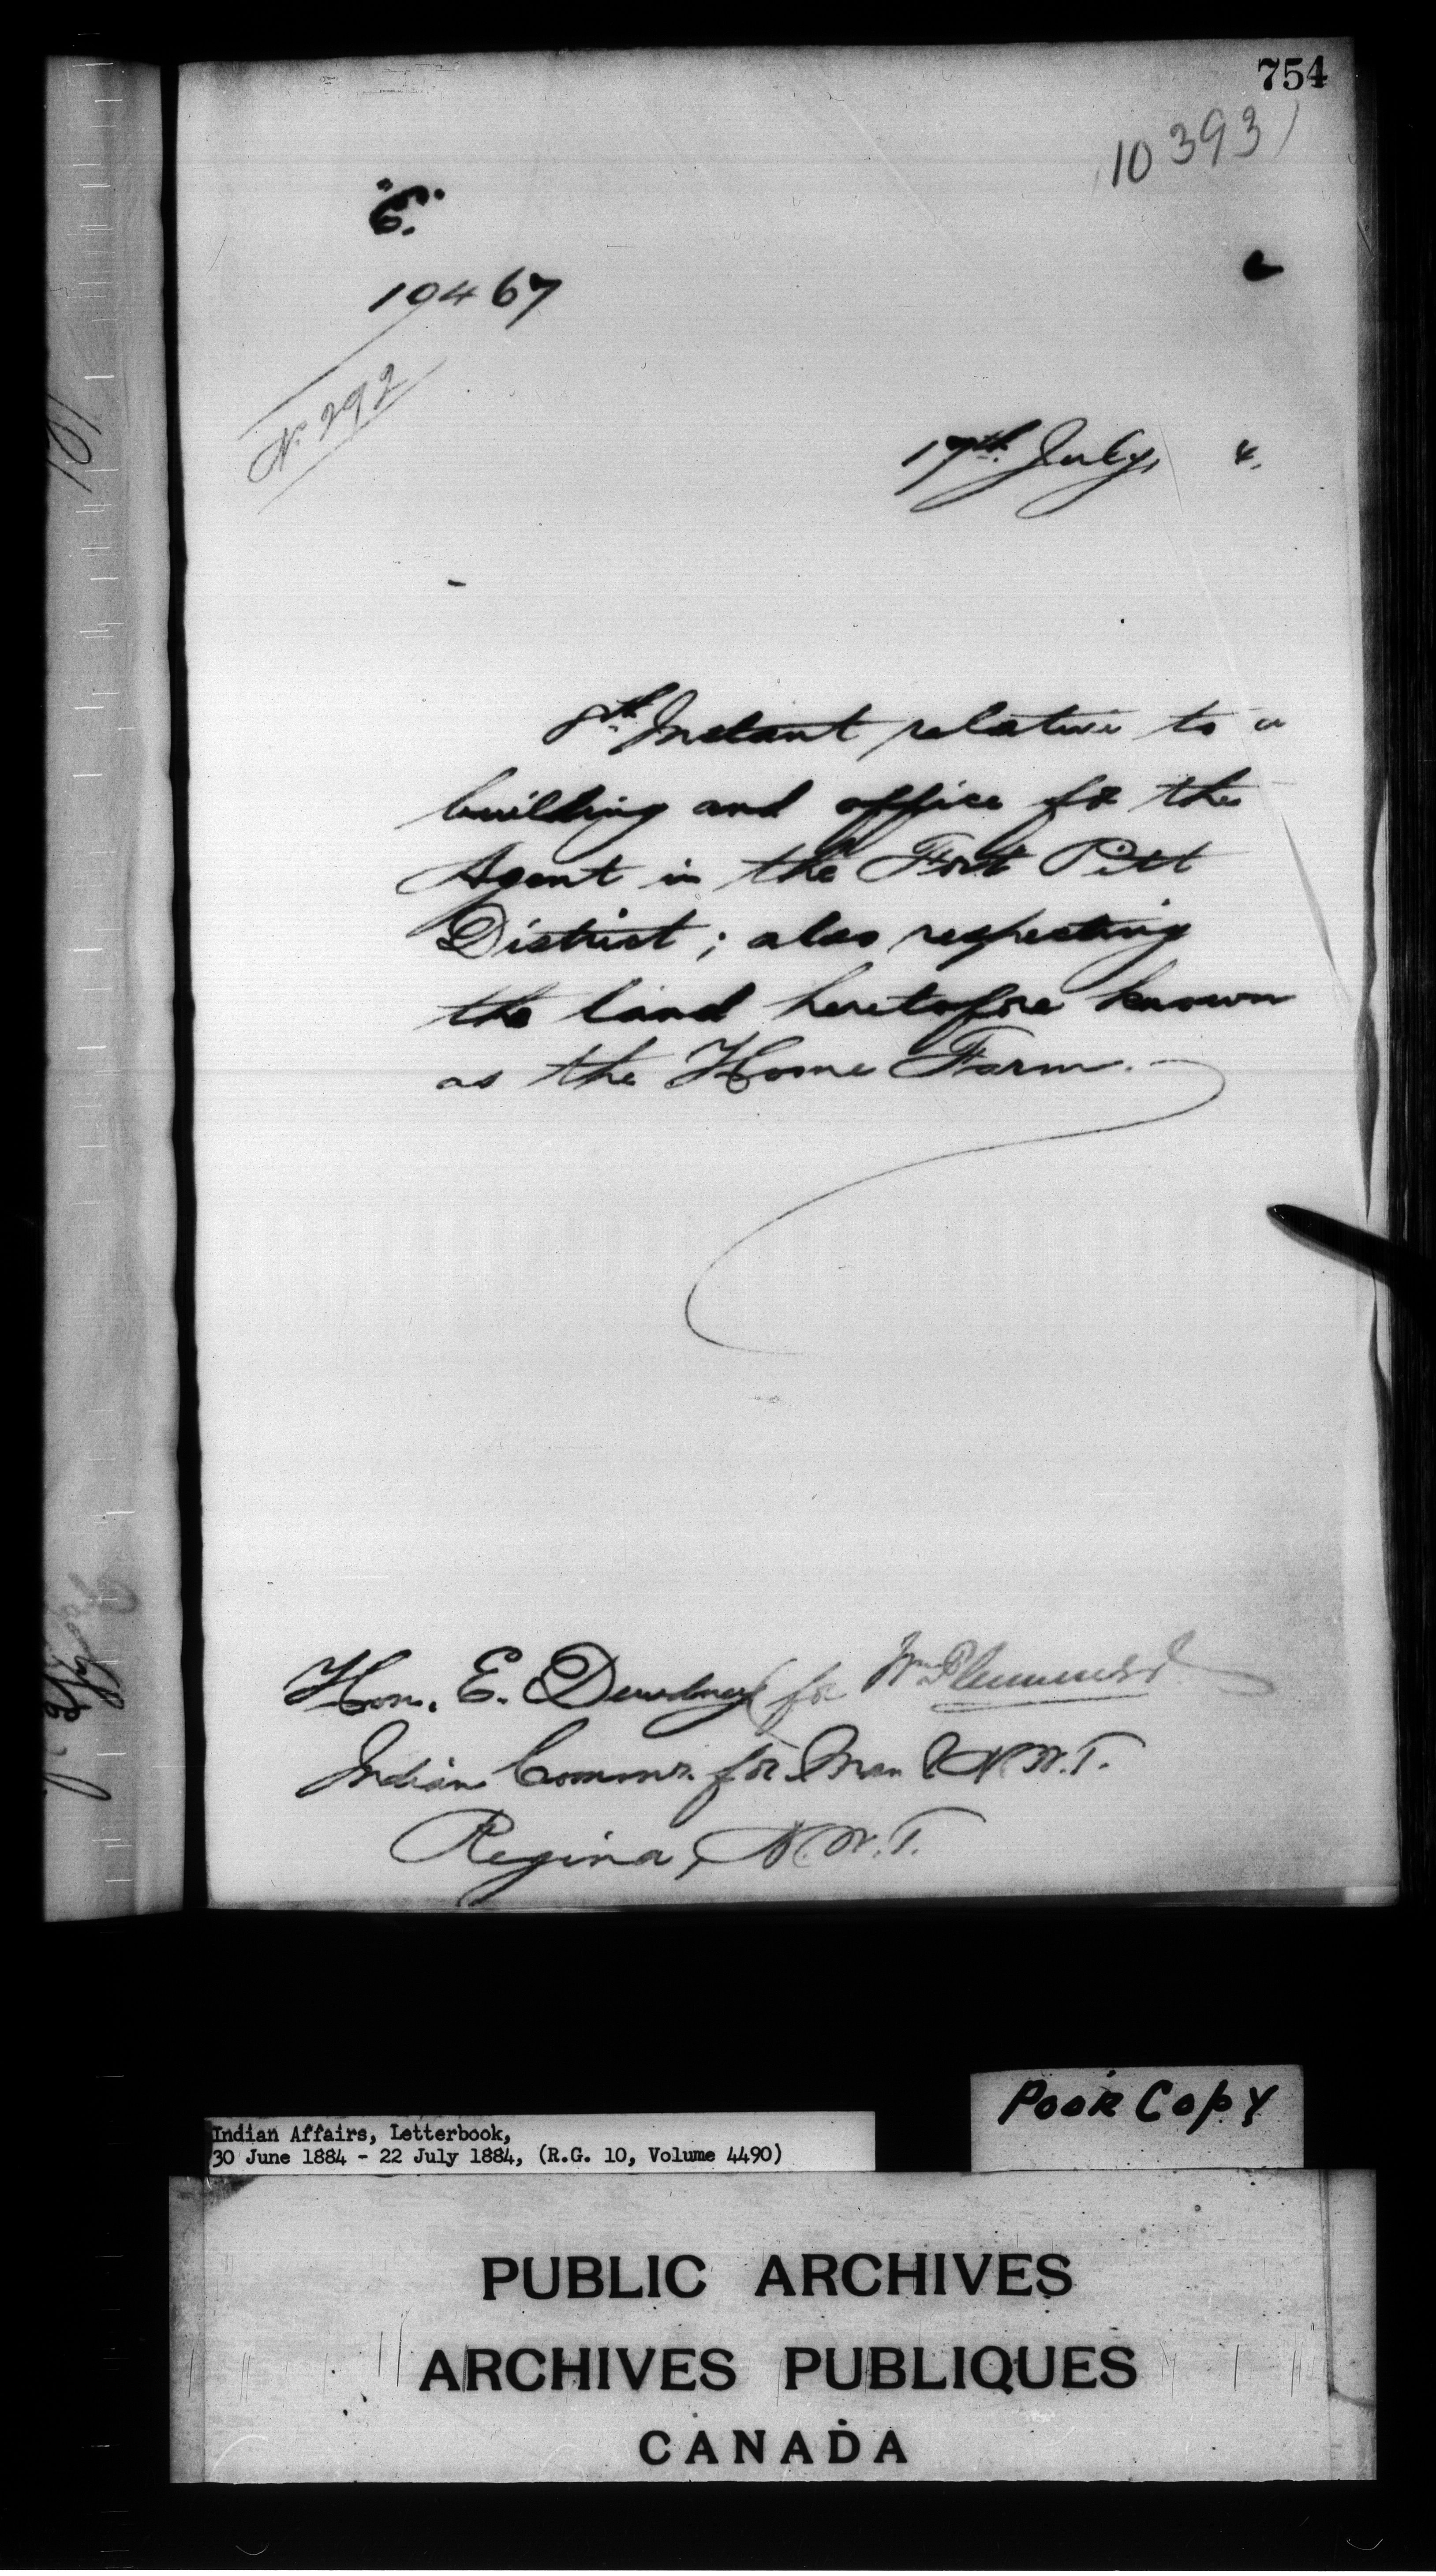 754
10393
"E".
10467
No 292
17th July, 4.
8th Instant relative to a
building and office for the
Agent in the Fort Pitt
District; also respecting
the land heretofore known
as the Home Farm.
Hon. E. Dewdney for Wm Plummer
Indian Commr. for Man & N.W.T.
Regina, N.W.T.
Poor Copy
Indian Affairs, Letterbook,
30 June 1884 - 22 July 1884, (R.G. 10, Volume 4490)
PUBLIC ARCHIVES
ARCHIVES PUBLIQUES
CANADA